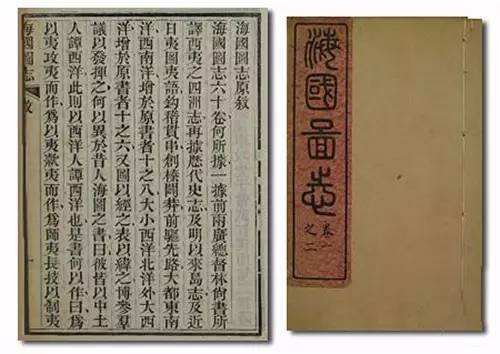 海國圖志原敘
海國圖志六十卷何所據一據前兩廣總督林尚書所
譯西夷之四洲志再據歷代史志及明以來島志及近
日夷圖夷語鈎稽貫串創榛闢莽前驅先路大都東南
洋西南洋增於原書者十之八大小西洋北洋外大西
洋增於原書者十之六又圖以經之表以緯之博參羣
議以發揮之何以異於昔人海圖之書曰彼皆以中土
人譚西洋此則以西洋人譚西洋也是書何以作曰爲
以夷攻夷而作爲以夷款夷而作爲師夷長技以制夷
海國圖志 敘
海國圖志
卷一
之二